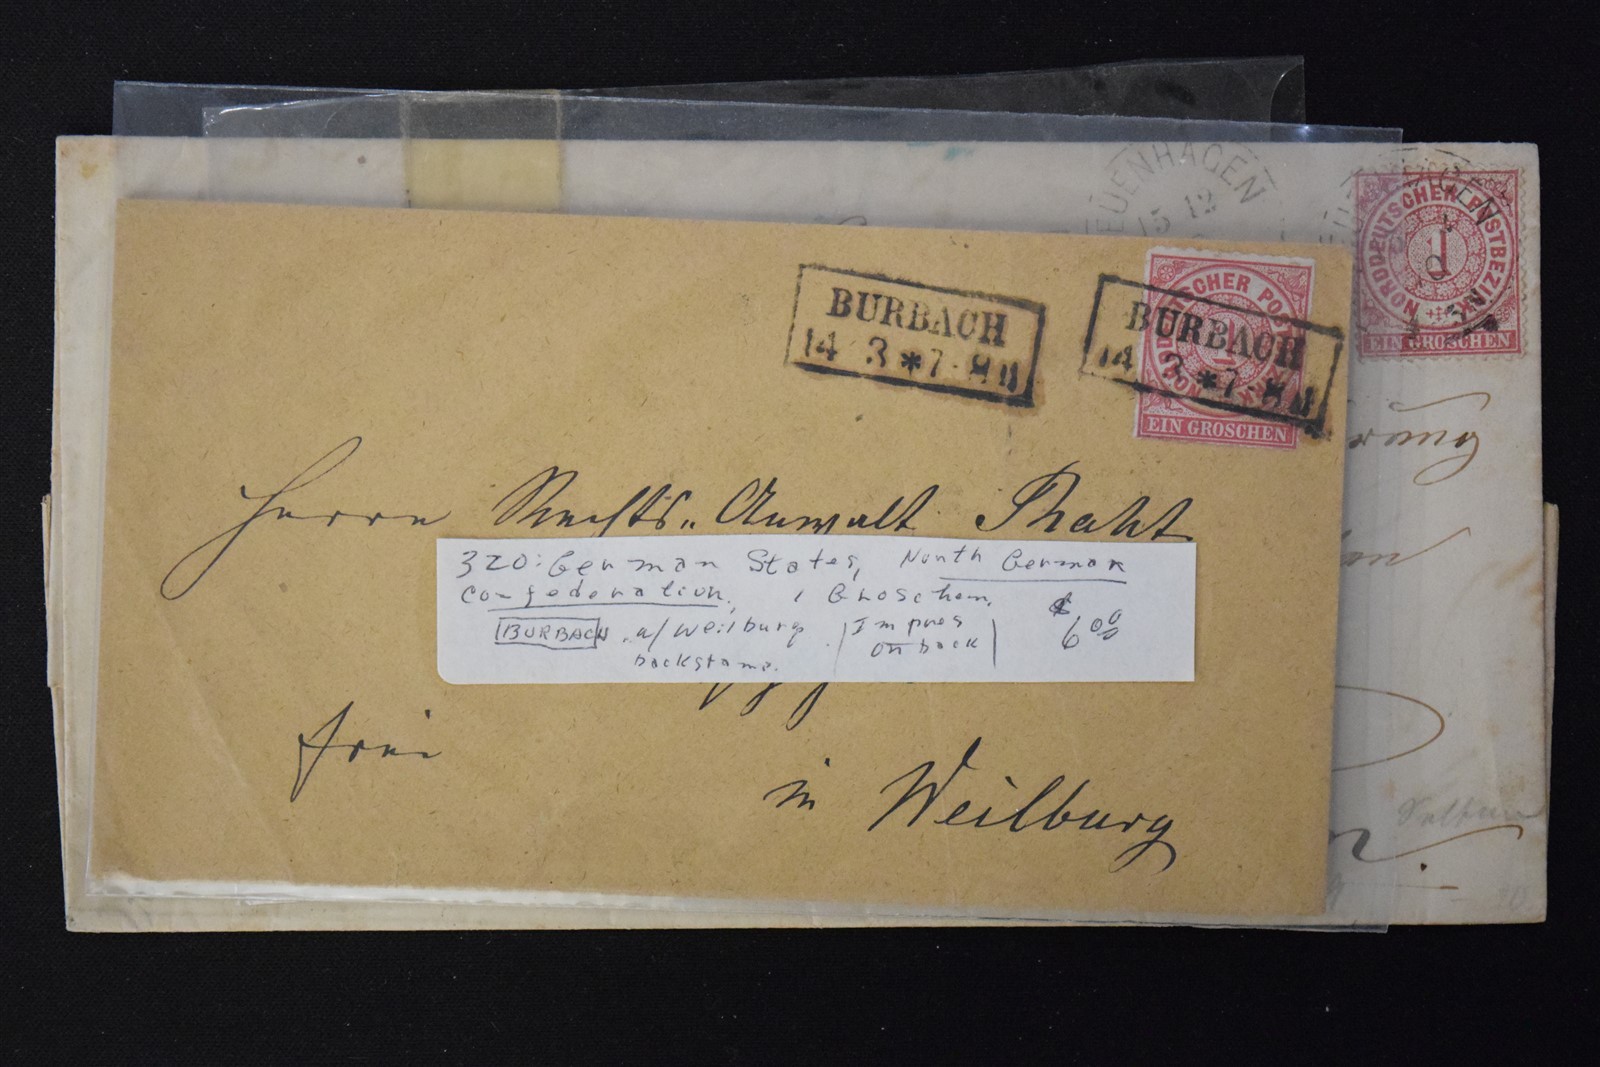 EUENHAGEN
15 12
NORDDEUTSCHER POSTBEZIRK
1
EIN GROSCHEN
BURBACH
14 3 * 7-8 N
BURBACH
14 3 * 7-8 N
EIN GROSCHEN
Herrn Rechts-Anwalt
320: German States, North German
Confederation, 1 Groschen.
BURBACH w/ Weilburg
backstamp.
Impres
on back
$6.00
frei
in Weilburg